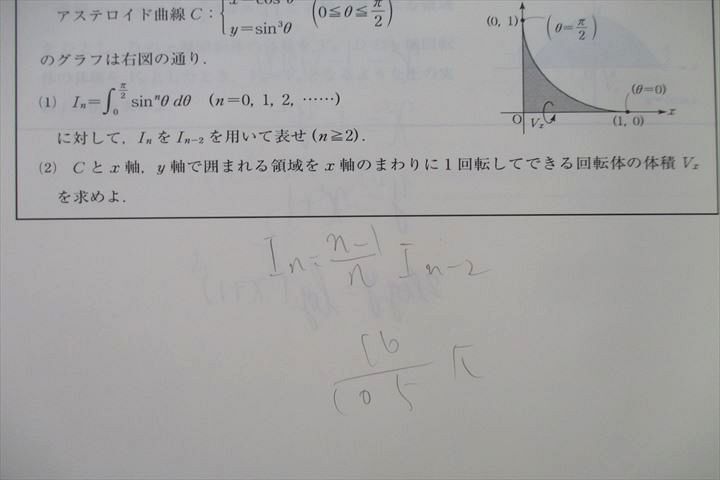 アステロイド曲線 C：{x=cos³θ
y=sin³θ (0≦θ≦π/2)
のグラフは右図の通り．
(1) Iₙ=∫₀^{π/2} sinⁿθ dθ (n=0, 1, 2, ……)
に対して，Iₙ を Iₙ₋₂ を用いて表せ (n≧2)．
(2) C と x 軸，y 軸で囲まれる領域を x 軸のまわりに 1 回転してできる回転体の体積 Vₓ
を求めよ．
(0, 1)
(θ=π/2)
(θ=0)
O
Vₓ
(1, 0)
x
Iₙ = (n-1)/n Iₙ₋₂
16/105 π